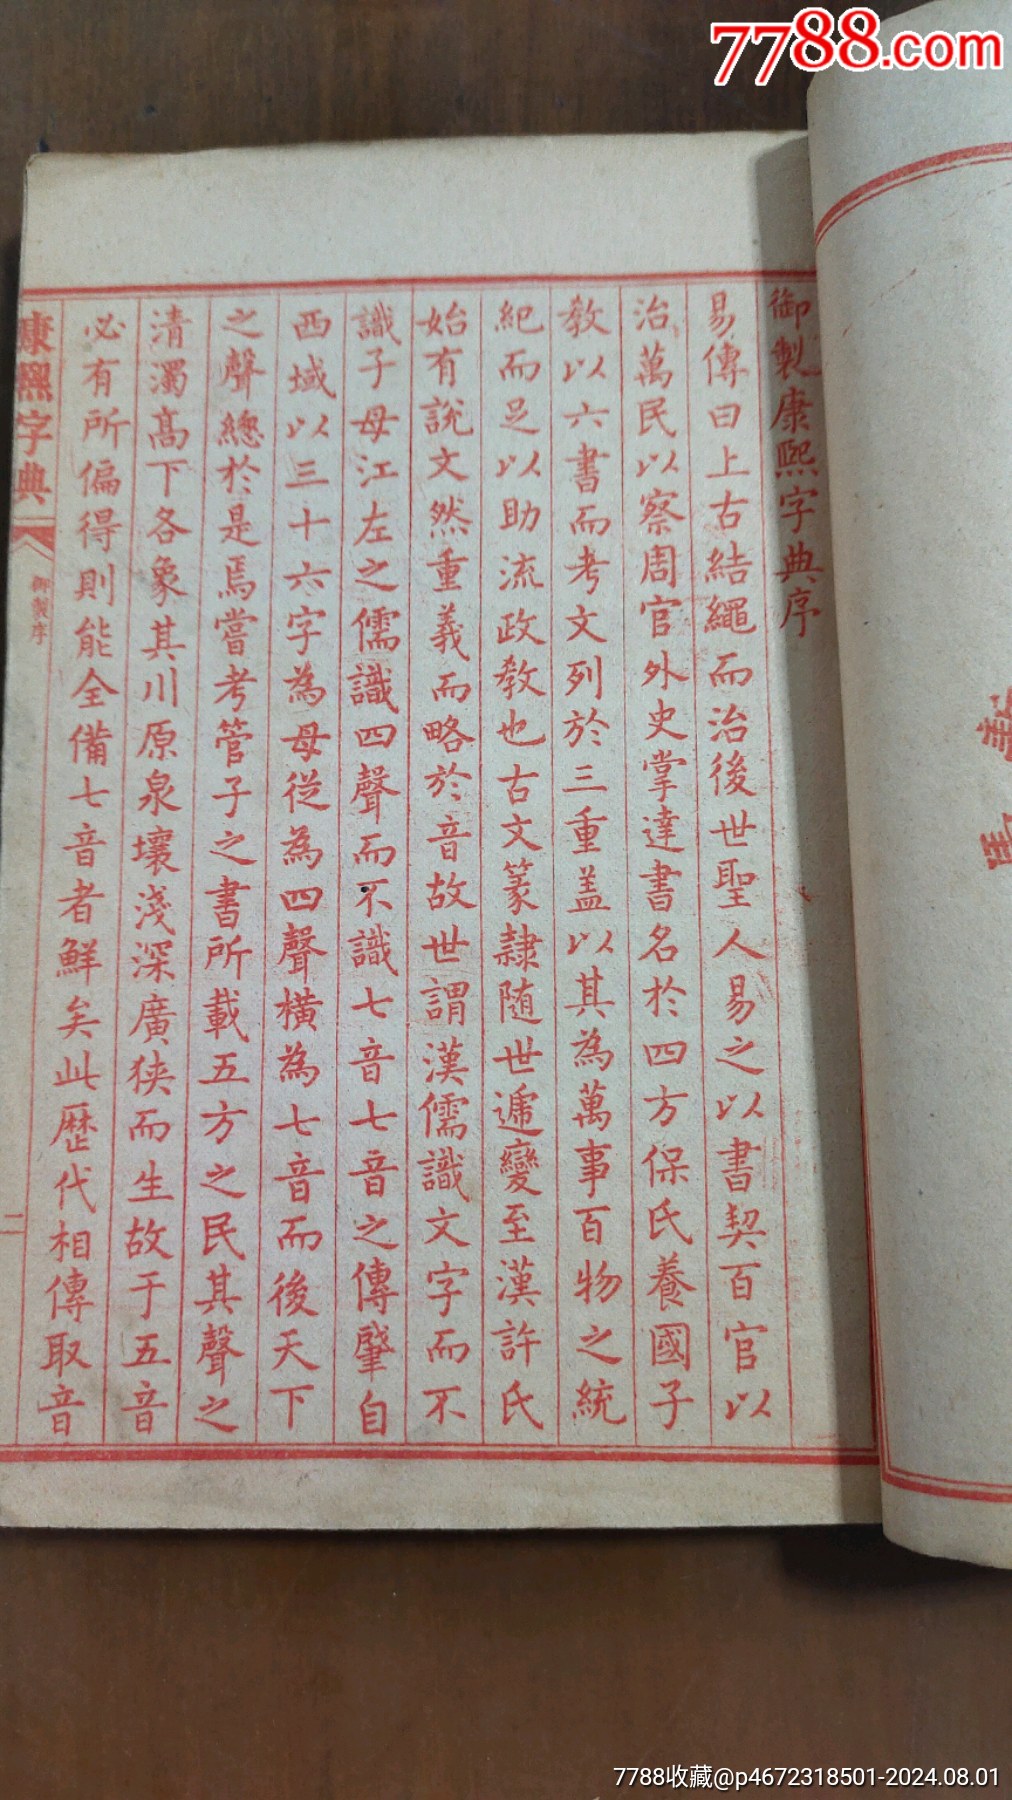 7788.com
御製康熙字典序
易傳曰上古結繩而治後世聖人易之以書契百官以
治萬民以察周官外史掌達書名於四方保氏養國子
教以六書而考文列於三重蓋以其為萬事百物之統
紀而足以助流政教也古文篆隷随世遞變至漢許氏
始有說文然重義而略於音故世謂漢儒識文字而不
識子母江左之儒識四聲而不識七音七音之傳肇自
西域以三十六字為母從為四聲橫為七音而後天下
之聲總於是焉嘗考管子之書所載五方之民其聲之
清濁高下各象其川原泉壤淺深廣狹而生故于五音
必有所偏得則能全備七音者鮮矣此歷代相傳取音
康熙字典
御製序
二
7788收藏@p4672318501-2024.08.01